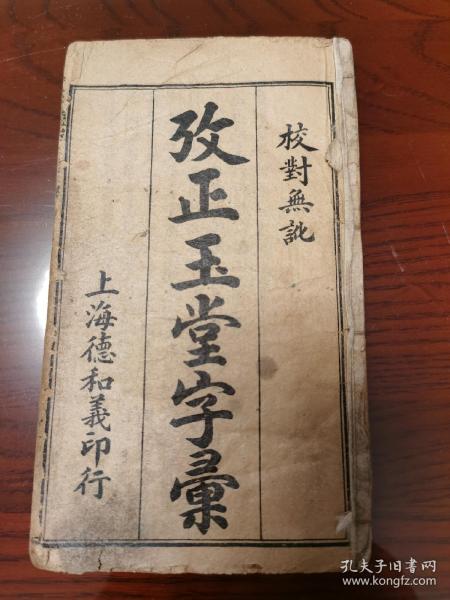 校對無訛
攷正玉堂字彙
上海德和義印行
孔夫子旧书网
www.kongfz.com